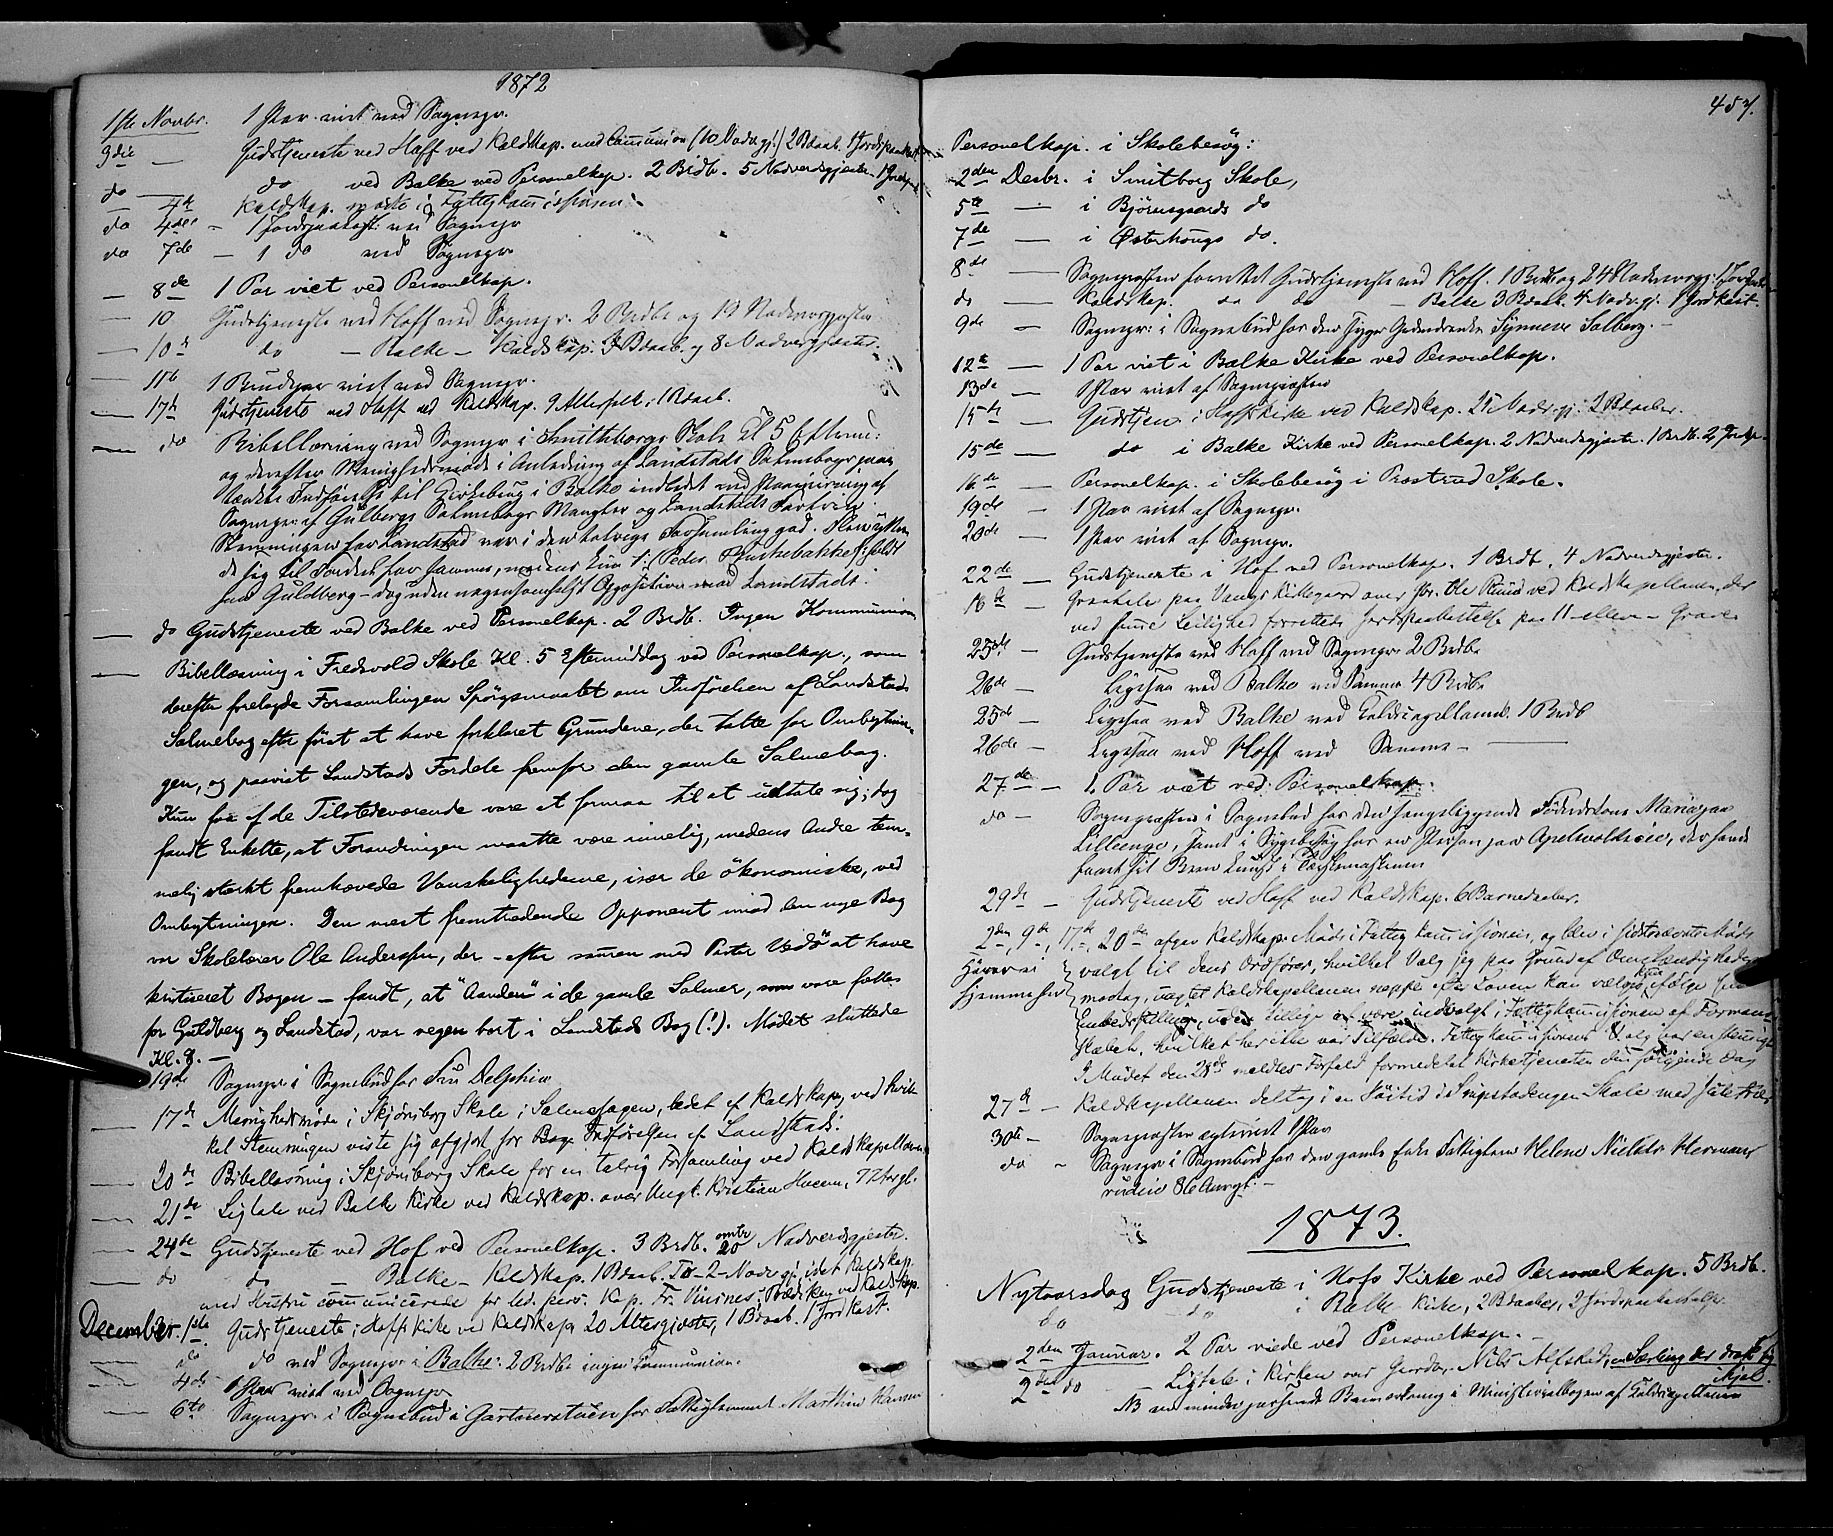 1872
1ste Novbr. 1 Par viet ved Sognepr.
3die — Gudstjeneste ved Hoff ved Kaldskap. med Communion (10 Nadvgj.) 2 Bdaab. 1 Jordspaakast.
do — do ved Balke ved Personelkap. 2 Brdb. 5 Nadverdsgjester 1 Jordsp.
4de Kaldskap. møtte i Fattigkommissionen.
do 4de — 1 Jordspaakast. ved Sognepr
do 7de — 1 do ved Sognepr.
— 8de 1 Par viet ved Personelkap.
— 10 Gudstjeneste ved Hoff ved Sognepr. 2 Brdb. og 19 Nadvergjester
— 10de do — Balke — Kaldskap. 3 Bdaab. og 8 Nadvergjæster.
— 11te 1 Brudepar viet ved Sognepr.
— 17de Gudstjeneste ved Hoff ved Kaldskap. 9 Altersfolk; 1 Bdaab.
— do Bibellæsning ved Sognepr i Smithborgs Skole Kl 5 Efterm:
og derefter Menighedsmøde i Anledning af Landstads Salmebogs paa-
tænkte Indførelse til Kirkebrug i Balke indledet ved
Sognepr: af Guldbergs Salmebogs Mangler og Landstads Fortrin
Stemningen for Landstad var i den talrige Forsamling god.
de sig til Fordel for samme, medens kun 1: Peder
paa Guldberg — dog uden nogensomhelst Opposition mod Landstads.
— do Gudstjeneste ved Balke ved Personelkap. 2 Brdb. Ingen Kommunion
— Bibellæsning i Fredsvold Skole Kl. 5 Eftermiddag ved Personelkap., som
derefter forelagde Forsamlingen Spørgsmaalet om Indførelsen af Landstads
Salmebog efter først at have forklaret Grundene, der talte for Ombytnin-
gen, og paavist Landstads Fordele fremfor den gamle Salmebog.
Kun faa af de Tilstedeværende vare at formaa til at udtale sig; dog
fandt Enkelte, at Forandringen maatte være rimelig, medens Andre tem-
melig stærkt fremhævede Vanskelighederne, især de økonomiske, ved
Ombytningen. Den mest fremtrædende Opponent imod den nye Bog
var Skolelærer Ole Andersen, der — efter sammen med Pastor Vedø at have
kritiseret Bogen — fandt, at "Aanden" i de gamle Salmer, som vare fælles
for Guldberg og Landstad, var vegen bort i Landstads Bog (!). Mødet sluttede
Kl. 8. —
19de Sognepr i Sognebud for Fru Delphin
— 17de Menighedsmøde i Skjønsborg Skole i Salmesagen, ledet af Kaldskap, ved hvil-
ket Stemningen viste sig afgjort for Bogs Indførelsen af Landstads.
— 20de Bibellæsning i Skjønsborg Skole for en talrig Forsamling ved Kaldskapellanen
— 21de Ligtale ved Balke Kirke ved Kaldskap. over Ungk. Kristian
— 24de Gudstjeneste ved Hof ved Personelkap. 3 Brdb. omtr 20 Nadverdsgjester.
— do do — Balke — Kaldskap. 1 Bdaab. 2 Nadvgj, idet Kaldskap.
med Hustru communicerede for
December. 1ste Gudstjeneste i Hoffs Kirke ved Kaldskap 20 Altergjester, 1 Bdaab. 1 Jordkast.
— do do ved Sognepr. i Balke: 2 Brdb. ingen Communion.
— 4de 1 Par viet ved Sognepr
— 6te Sognepr. i Sognebud i Gartnerstuen for Fattiglemmet
457.
Personelkap. i Skolebesøg:
2den Decbr. i Smitborg Skole,
5te — i Bjørnsgaards do
7de — i Østerhougs do.
8de — Sognepresten forrettet Gudstjeneste ved Hoff. 1 Brdb og 24 Nadversgj. 1 Jordpaak.
do — Kaldskap. do do — Balke 3 Bdaab. 4 Nadvgj. 1 Jordkast.
9de — Sognepr: i Sognebud for den syge Synneve Solberg. —
12te — 1 Par viet i Balke Kirke ved Personelkap.
13de — 1 Par viet af Sognepresten
15de — Gudstjen. i Hoffs Kirke ved Kaldskap. 25 Nadvgj. 2 Bdaaber.
15de — do i Balke Kirke ved Personelkap. 2 Nadverdsgjester. 1 Brdb. 2 Jordp.
16de — Personelkap. i Skolebesøg i Prestrud Skole.
19de — 1 Par viet af Sognepr.
20de — 1 Par viet af Sognepr.
22de — Gudstjeneste i Hof ved Personelkap. 1 Brdb. 4 Nadverdsgjester.
16de — Gravtale paa Vangs Kirkegaard over ved Kaldskapellanen, der
ved samme Leilighed forrettede Jordspaakastelse paa 11 — elleve — Grave
25de — Gudstjeneste ved Hoff ved Sognepr. 2 Brdb.
26de — Ligesaa ved Balke ved Samme 4 Brdb.
25de — Ligesaa ved Balke ved Kaldscapellanen. 1 Brdb
26de — Ligesaa ved Hoff ved Samme —
27de — 1 Par viet ved Personelkap.
do — Sognepresten i Sognebud for den sengeliggende
Lilleenge, samt i Sygebesøg for en Person paa Apelvoldseie, der havde
faaet sit Been knust i Tærskemaskinen
29de — Gudstjeneste ved Hoff ved Kaldskap. 6 Barnedaaber.
2den, 9de, 17de, 20de afgav Kaldskap. Møde i Fattigkommissionen, og blev i sidstnævnte Møde
valgt til dens Ordfører, hvilket Valg jeg paa Grund af
modtog, uagtet Kaldskapellanen neppe efter Loven kan vælges ifølge sin
Embedsstilling, uden tillige at være indvalgt i Fattigkommissionen af Formand-
skabet, hvilket her ikke var Tilfælde.
I Mødet den 28de meldtes Forfald formedelst Kirketjenesten den følgende Dag
27de — Kaldskapellanen deltog i en Høitid i Skole med Juletræ.
30te — Sognepresten ægteviet 1 Par
do — Sognepr i Sognebud for den gamle Enke Fattiglem Helene
86 Aar gl. —
1873.
Nytaarsdag Gudstjeneste i Hofs Kirke ved Personelkap. 5 Brdb.
do do i Balke Kirke, 2 Bdaaber, 2 Jordspaakastelser.
2den Januar. 2 Par viede ved Personelkap. —
2den do — Ligtale i Kirken over Nils Alfstad, en Særling der drak sig
ihjel.
NB en mindre passende Bemærkning i Ministerialbogen af Kaldscapellanen